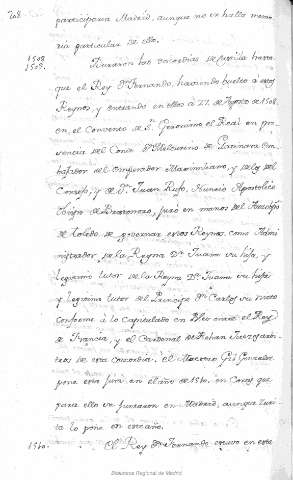 participaria Madrid, aunque no se halla memo-
ria particular de ello.
1508
1509.
Duraron las discordias de Castilla hasta
que el Rey Dn Fernando, haviendo buelto a estos
Reynos, y entrando en ellos à 21 de Agosto de 1508
en, el Convento de Sn Geronimo el Real en pre-
sencia del Conde Dn Mercurino de Em-
bajador del emperador Maximiliano, y de los del
Consejo, y de Dn Juan Rufo, Nuncio Apostolico
Obispo de juró en manos del Arzobispo
de toledo de governar estos Reynos como Admi-
nistrador de la Reyna Da Juana su hija, y
Legitimo tutor de la Reyna Da Juana su hija
y Legitimo tutor del Principe Dn Carlos su nieto
conforme à lo Capitulado en Bles entre el Rey
de Francia, y el Cardenal de Rohan
de esta concordia, el Maestro Gil Gonzalez
pone esta jura en el año de 1510. en Cortes que
para ello se juntaron en Madrid, aunque Zuri-
ta lo pone en este año.
1510. El Rey Dn Fernando estuvo en esta
Biblioteca Regional de Madrid